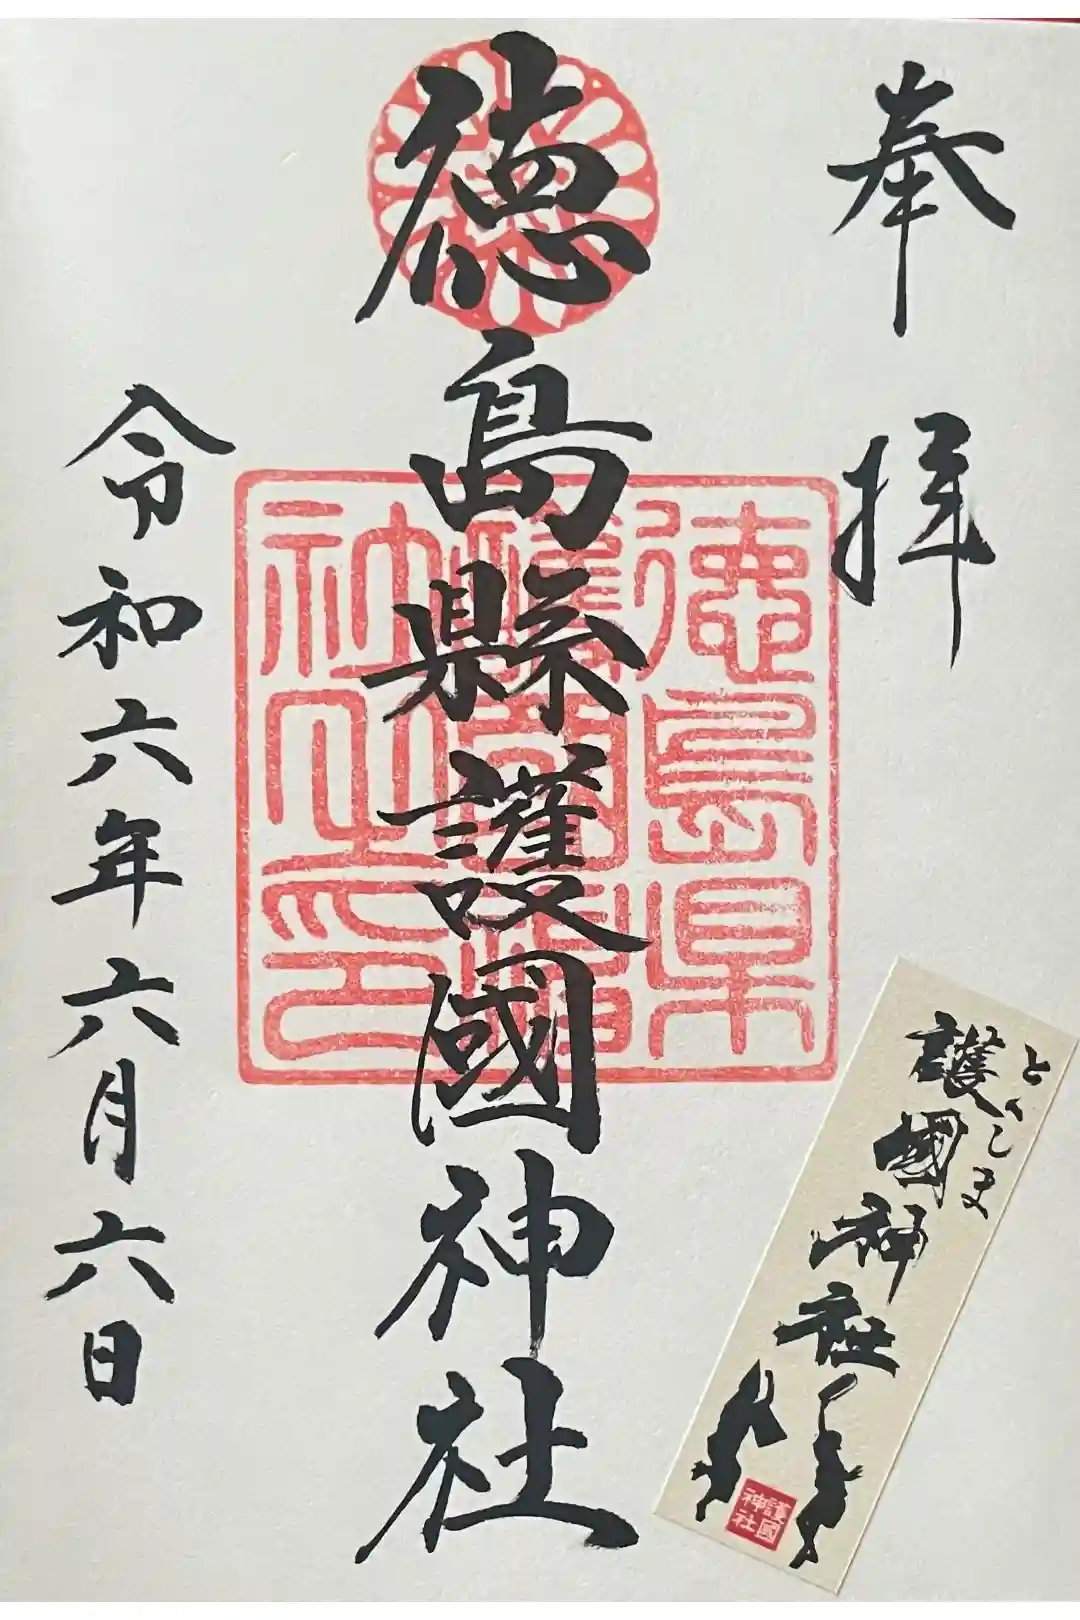 奉拝
徳島縣護國神社
徳島県
護國神
社之印
令和六年六月六日
とくしま
護國神社
護國
神社